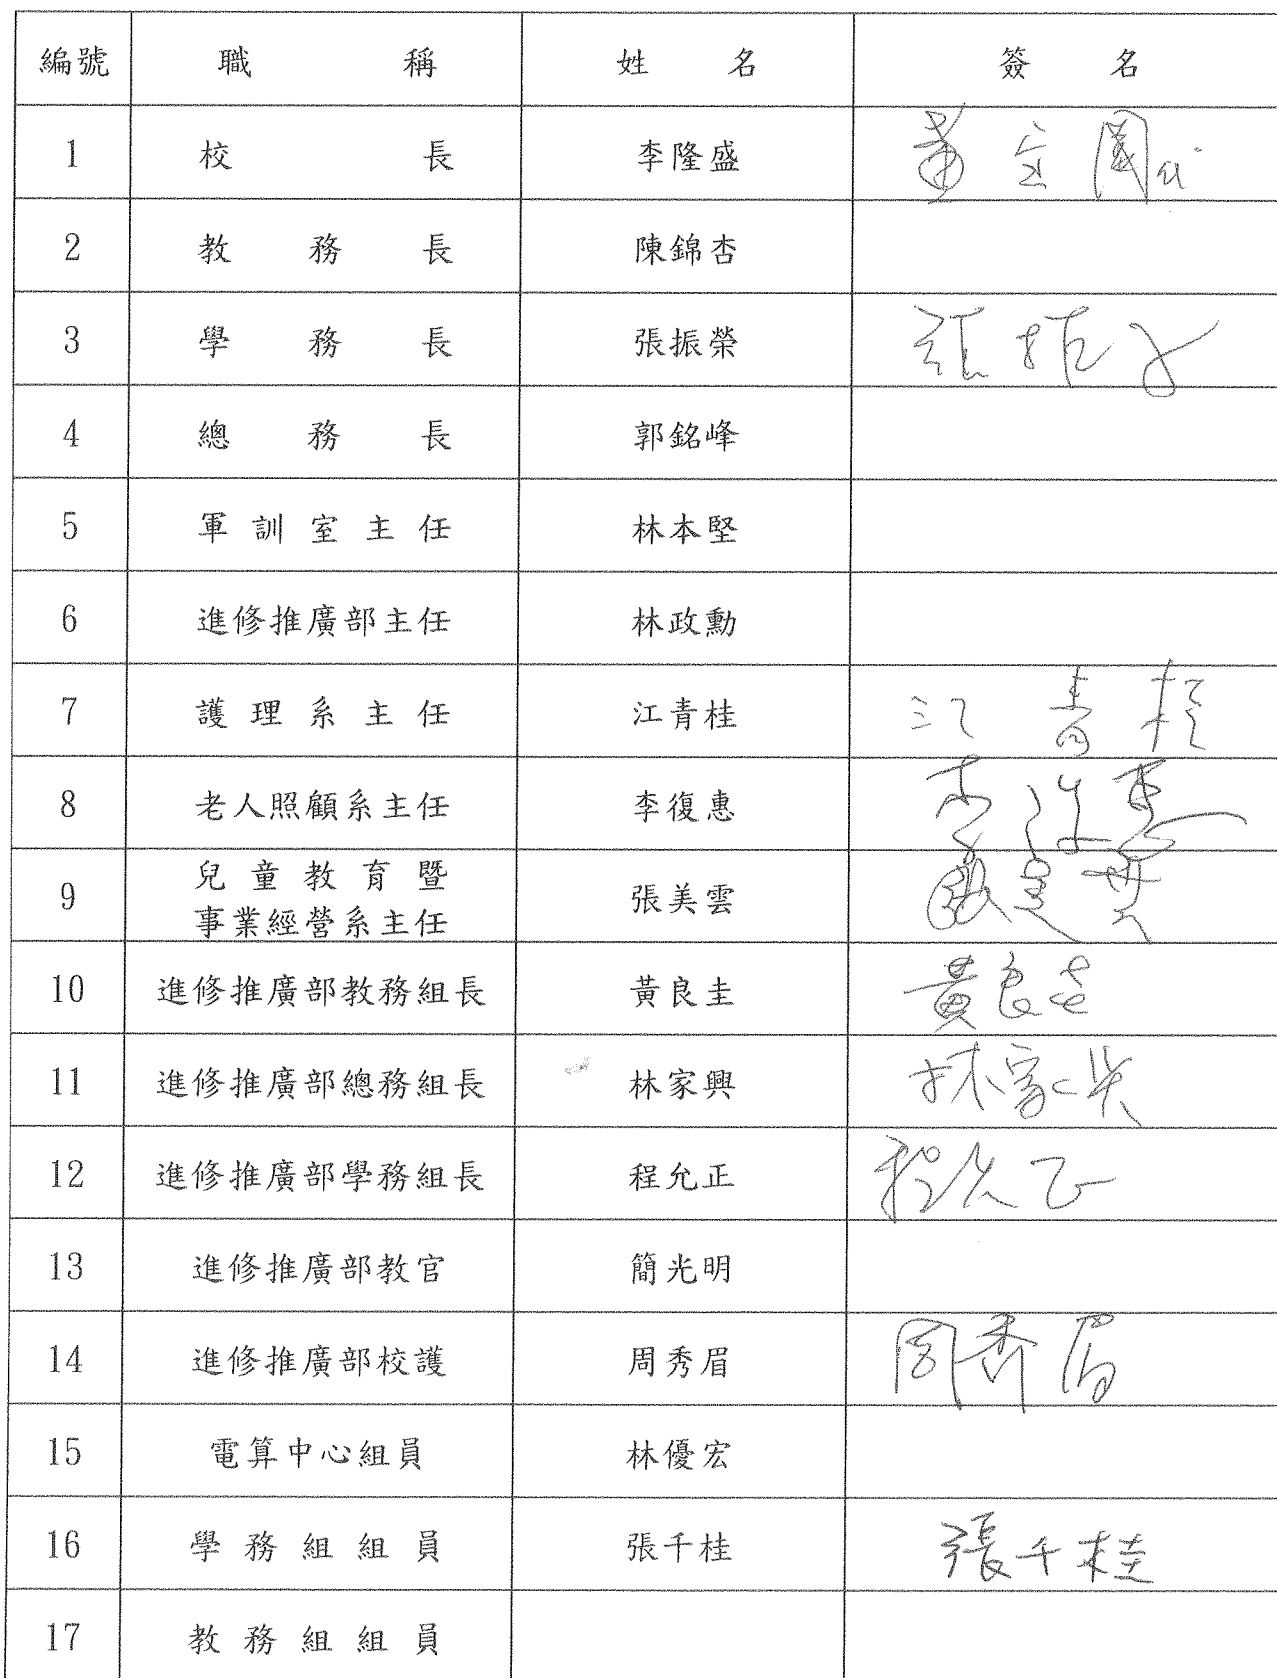 編號 職稱 姓名 簽名
1 校長 李隆盛
2 教務長 陳錦杏
3 學務長 張振榮
4 總務長 郭銘峰
5 軍訓室主任 林本堅
6 進修推廣部主任 林政勳
7 護理系主任 江青桂 江青桂
8 老人照顧系主任 李復惠 李復惠
9 兒童教育暨
事業經營系主任 張美雲
10 進修推廣部教務組長 黃良圭 黃良圭
11 進修推廣部總務組長 林家興 林家興
12 進修推廣部學務組長 程允正 程允正
13 進修推廣部教官 簡光明
14 進修推廣部校護 周秀眉 周秀眉
15 電算中心組員 林優宏
16 學務組組員 張千桂 張千桂
17 教務組組員